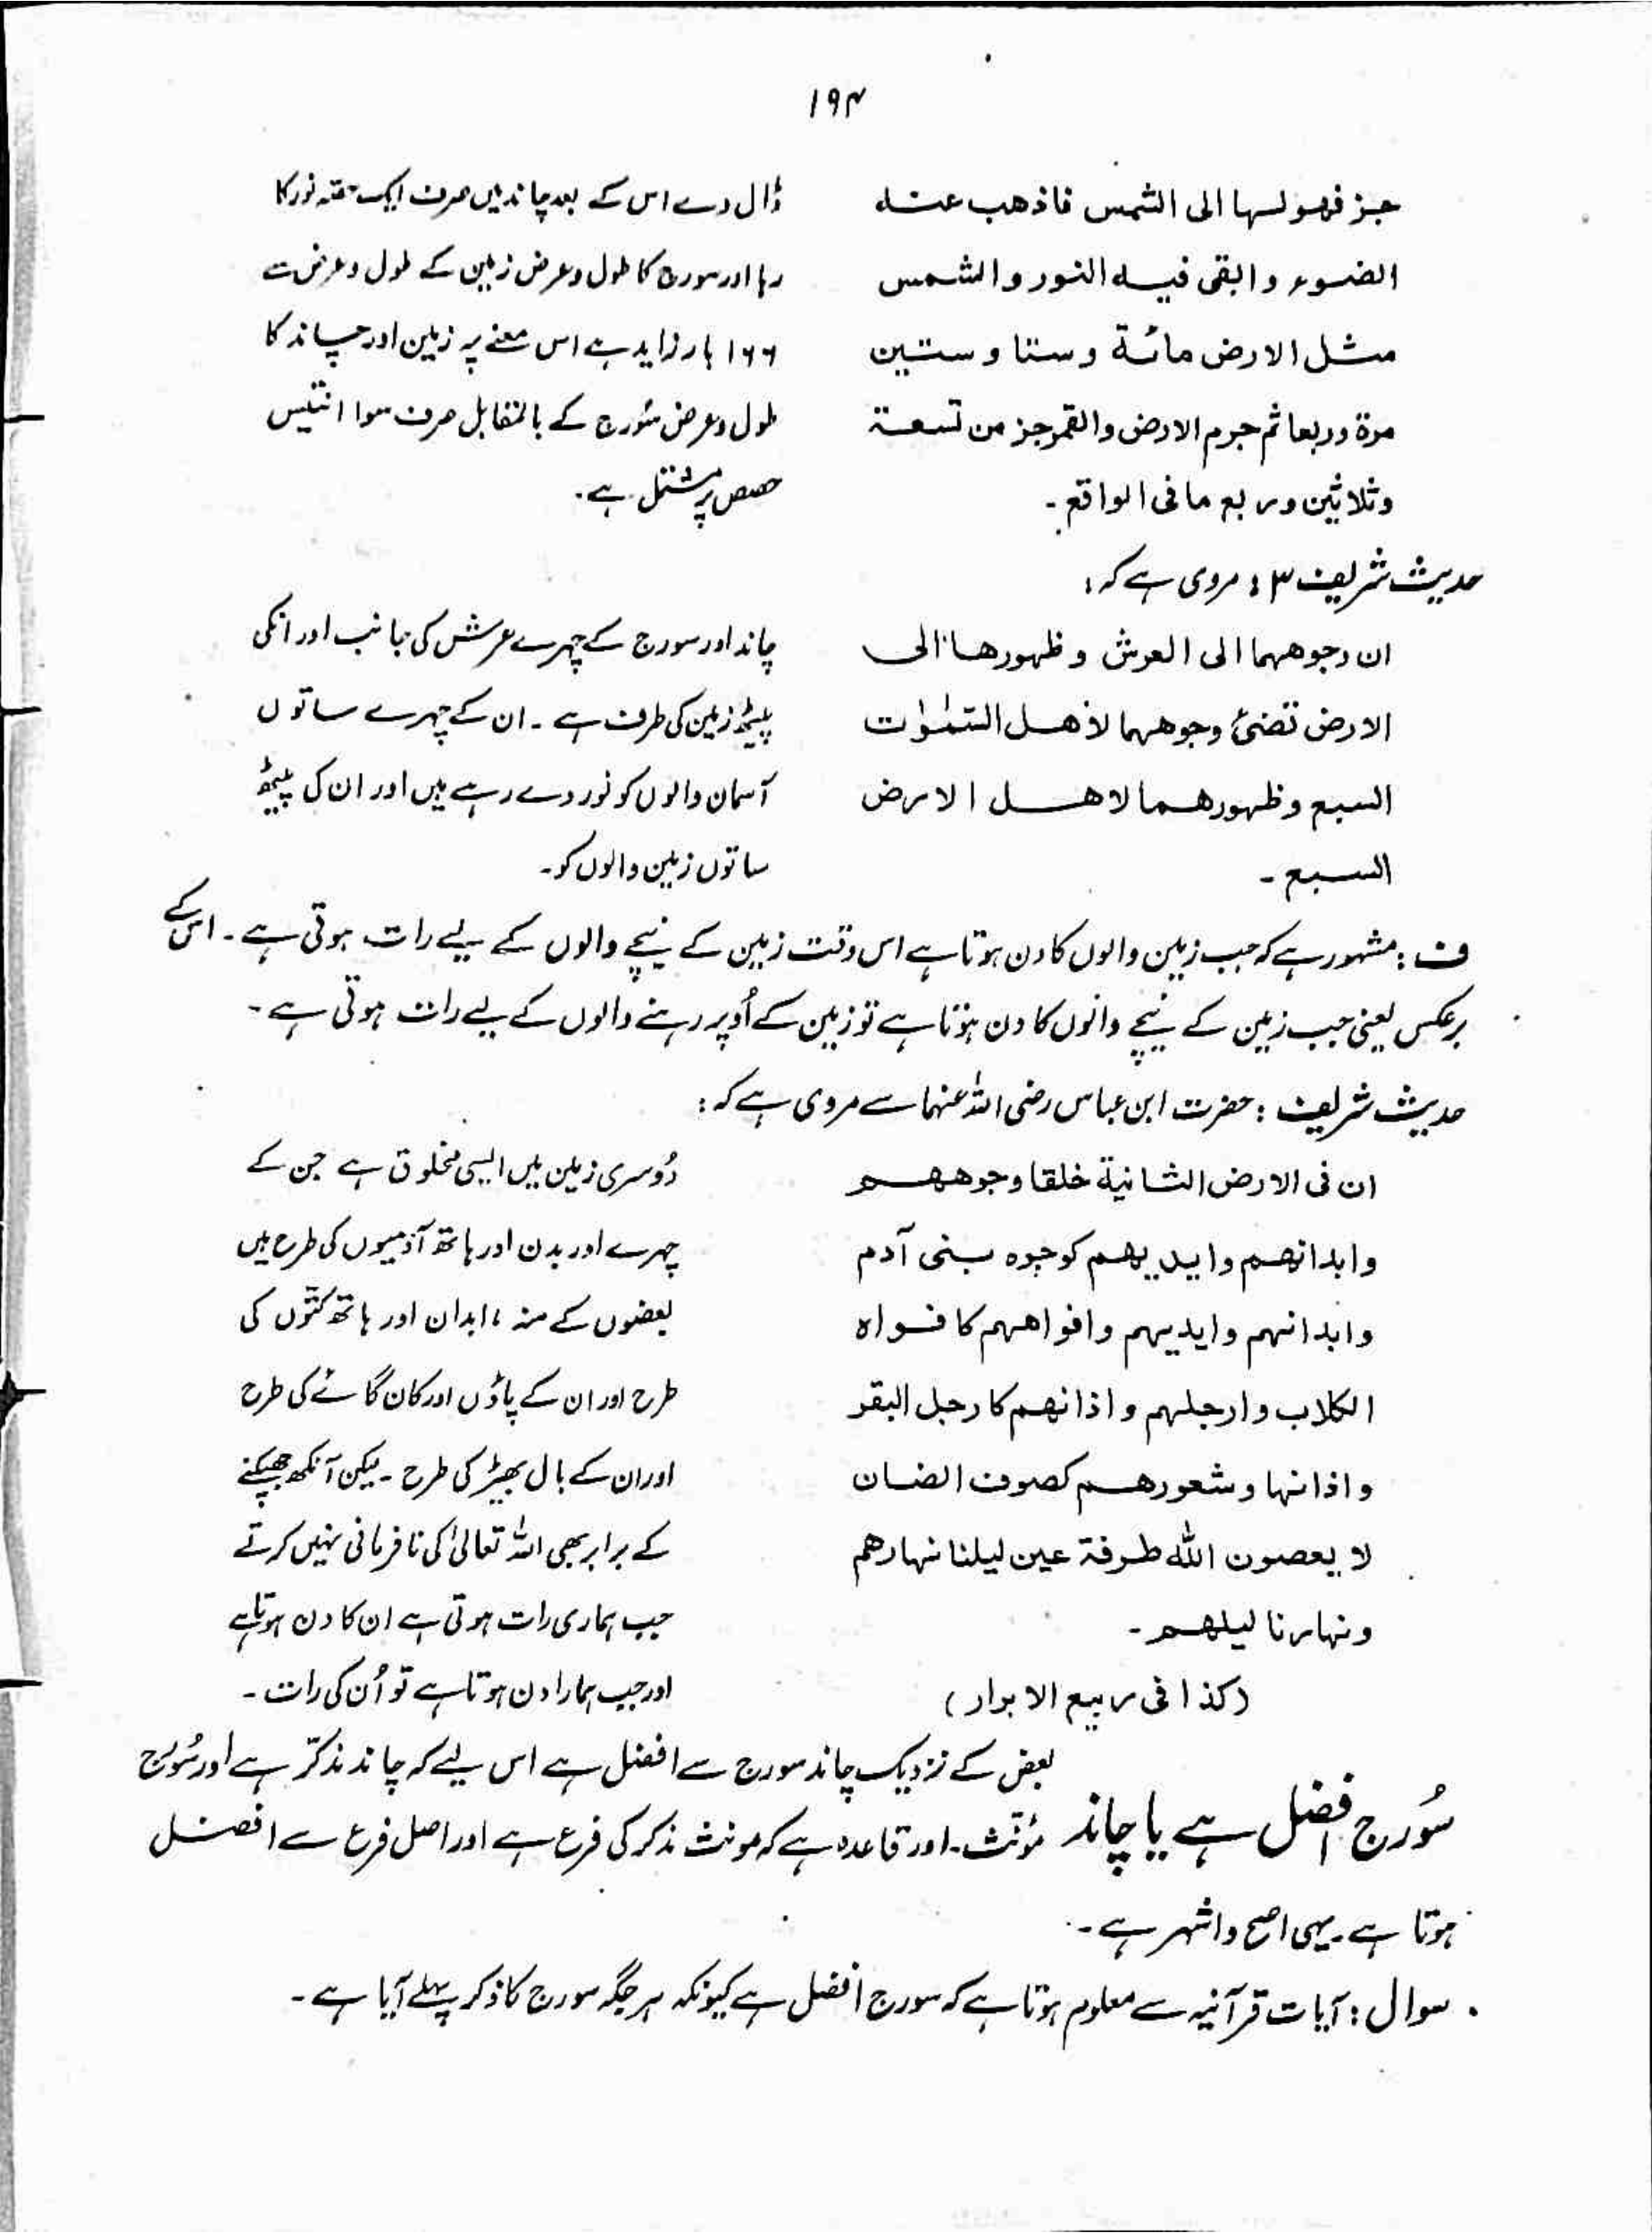 ۱۹۴
جز فهو لها الى الشمس فاذهب عنه
الضوء و ابقى فيه النور والشمس
مثل الارض مائة و ستا وستين
مرة وربعا ثم جرم الارض والقمر جز من تسعة
وثلاثين وربع ما فى الواقع ۔
ڈال دے اس کے بعد چاند میں صرف ایک حصّہ نور کا
رہا اور سورج کا طول و عرض زمین کے طول و عرض سے
۱۶۶ بار زاید ہے اس معنے پر زمین اور چاند کا
طول و عرض سُورج کے بالمقابل صرف سوا انتیس
حصص پر مشتمل ہے۔
حدیث شریف ۳ : مروی ہے کہ :
ان وجوههما الى العرش وظهورهما الى
الارض تضئ وجوههما لأهل السمٰوٰت
السبع وظهورهما لاهل الارض
السبع ۔
چاند اور سورج کے چہرے عرش کی جانب اور انکی
پیٹھ زمین کی طرف ہے ۔ ان کے چہرے ساتوں
آسمان والوں کو نور دے رہے ہیں اور ان کی پیٹھ
ساتوں زمین والوں کو ۔
ف : مشہور ہے کہ جب زمین والوں کا دن ہوتا ہے اس وقت زمین کے نیچے والوں کے لیے رات ہوتی ہے ۔ اس کے
برعکس یعنی جب زمین کے نیچے والوں کا دن ہوتا ہے تو زمین کے اُوپر رہنے والوں کے لیے رات ہوتی ہے ۔
حدیث شریف : حضرت ابن عباس رضی اللہ عنہما سے مروی ہے کہ :
ان فى الارض الثانية خلقا وجوههم
وابدانهم وايديهم كوجوه بنى آدم
وابدانهم وايديهم وافواههم كافواه
الكلاب وارجلهم واذانهم كارجل البقر
واذانها وشعورهم كصوف الضان
لا يعصون الله طرفة عين ليلنا نهارهم
ونهارنا ليلهم ۔
(كذا فى ربيع الابرار)
دُوسری زمین میں ایسی مخلوق ہے جن کے
چہرے اور بدن اور ہاتھ آدمیوں کی طرح ہیں
بعضوں کے منہ ، ابدان اور ہاتھ کتّوں کی
طرح اور ان کے پاؤں اور کان گائے کی طرح
اور ان کے بال بھیڑ کی طرح ۔ لیکن آنکھ جھپکنے
کے برابر بھی اللہ تعالیٰ کی نافرمانی نہیں کرتے
جب ہماری رات ہوتی ہے ان کا دن ہوتا ہے
اور جب ہمارا دن ہوتا ہے تو اُن کی رات ۔
سُورج افضل ہے یا چاند
بعض کے نزدیک چاند سورج سے افضل ہے اس لیے کہ چاند مذکّر ہے اور سُورج
مؤنّث ۔ اور قاعدہ ہے کہ مونث مذکر کی فرع ہے اور اصل فرع سے افضل
ہوتا ہے ۔ یہی اصح و اشہر ہے ۔
سوال : آیات قرآنیہ سے معلوم ہوتا ہے کہ سورج افضل ہے کیونکہ ہر جگہ سورج کا ذکر پہلے آیا ہے ۔